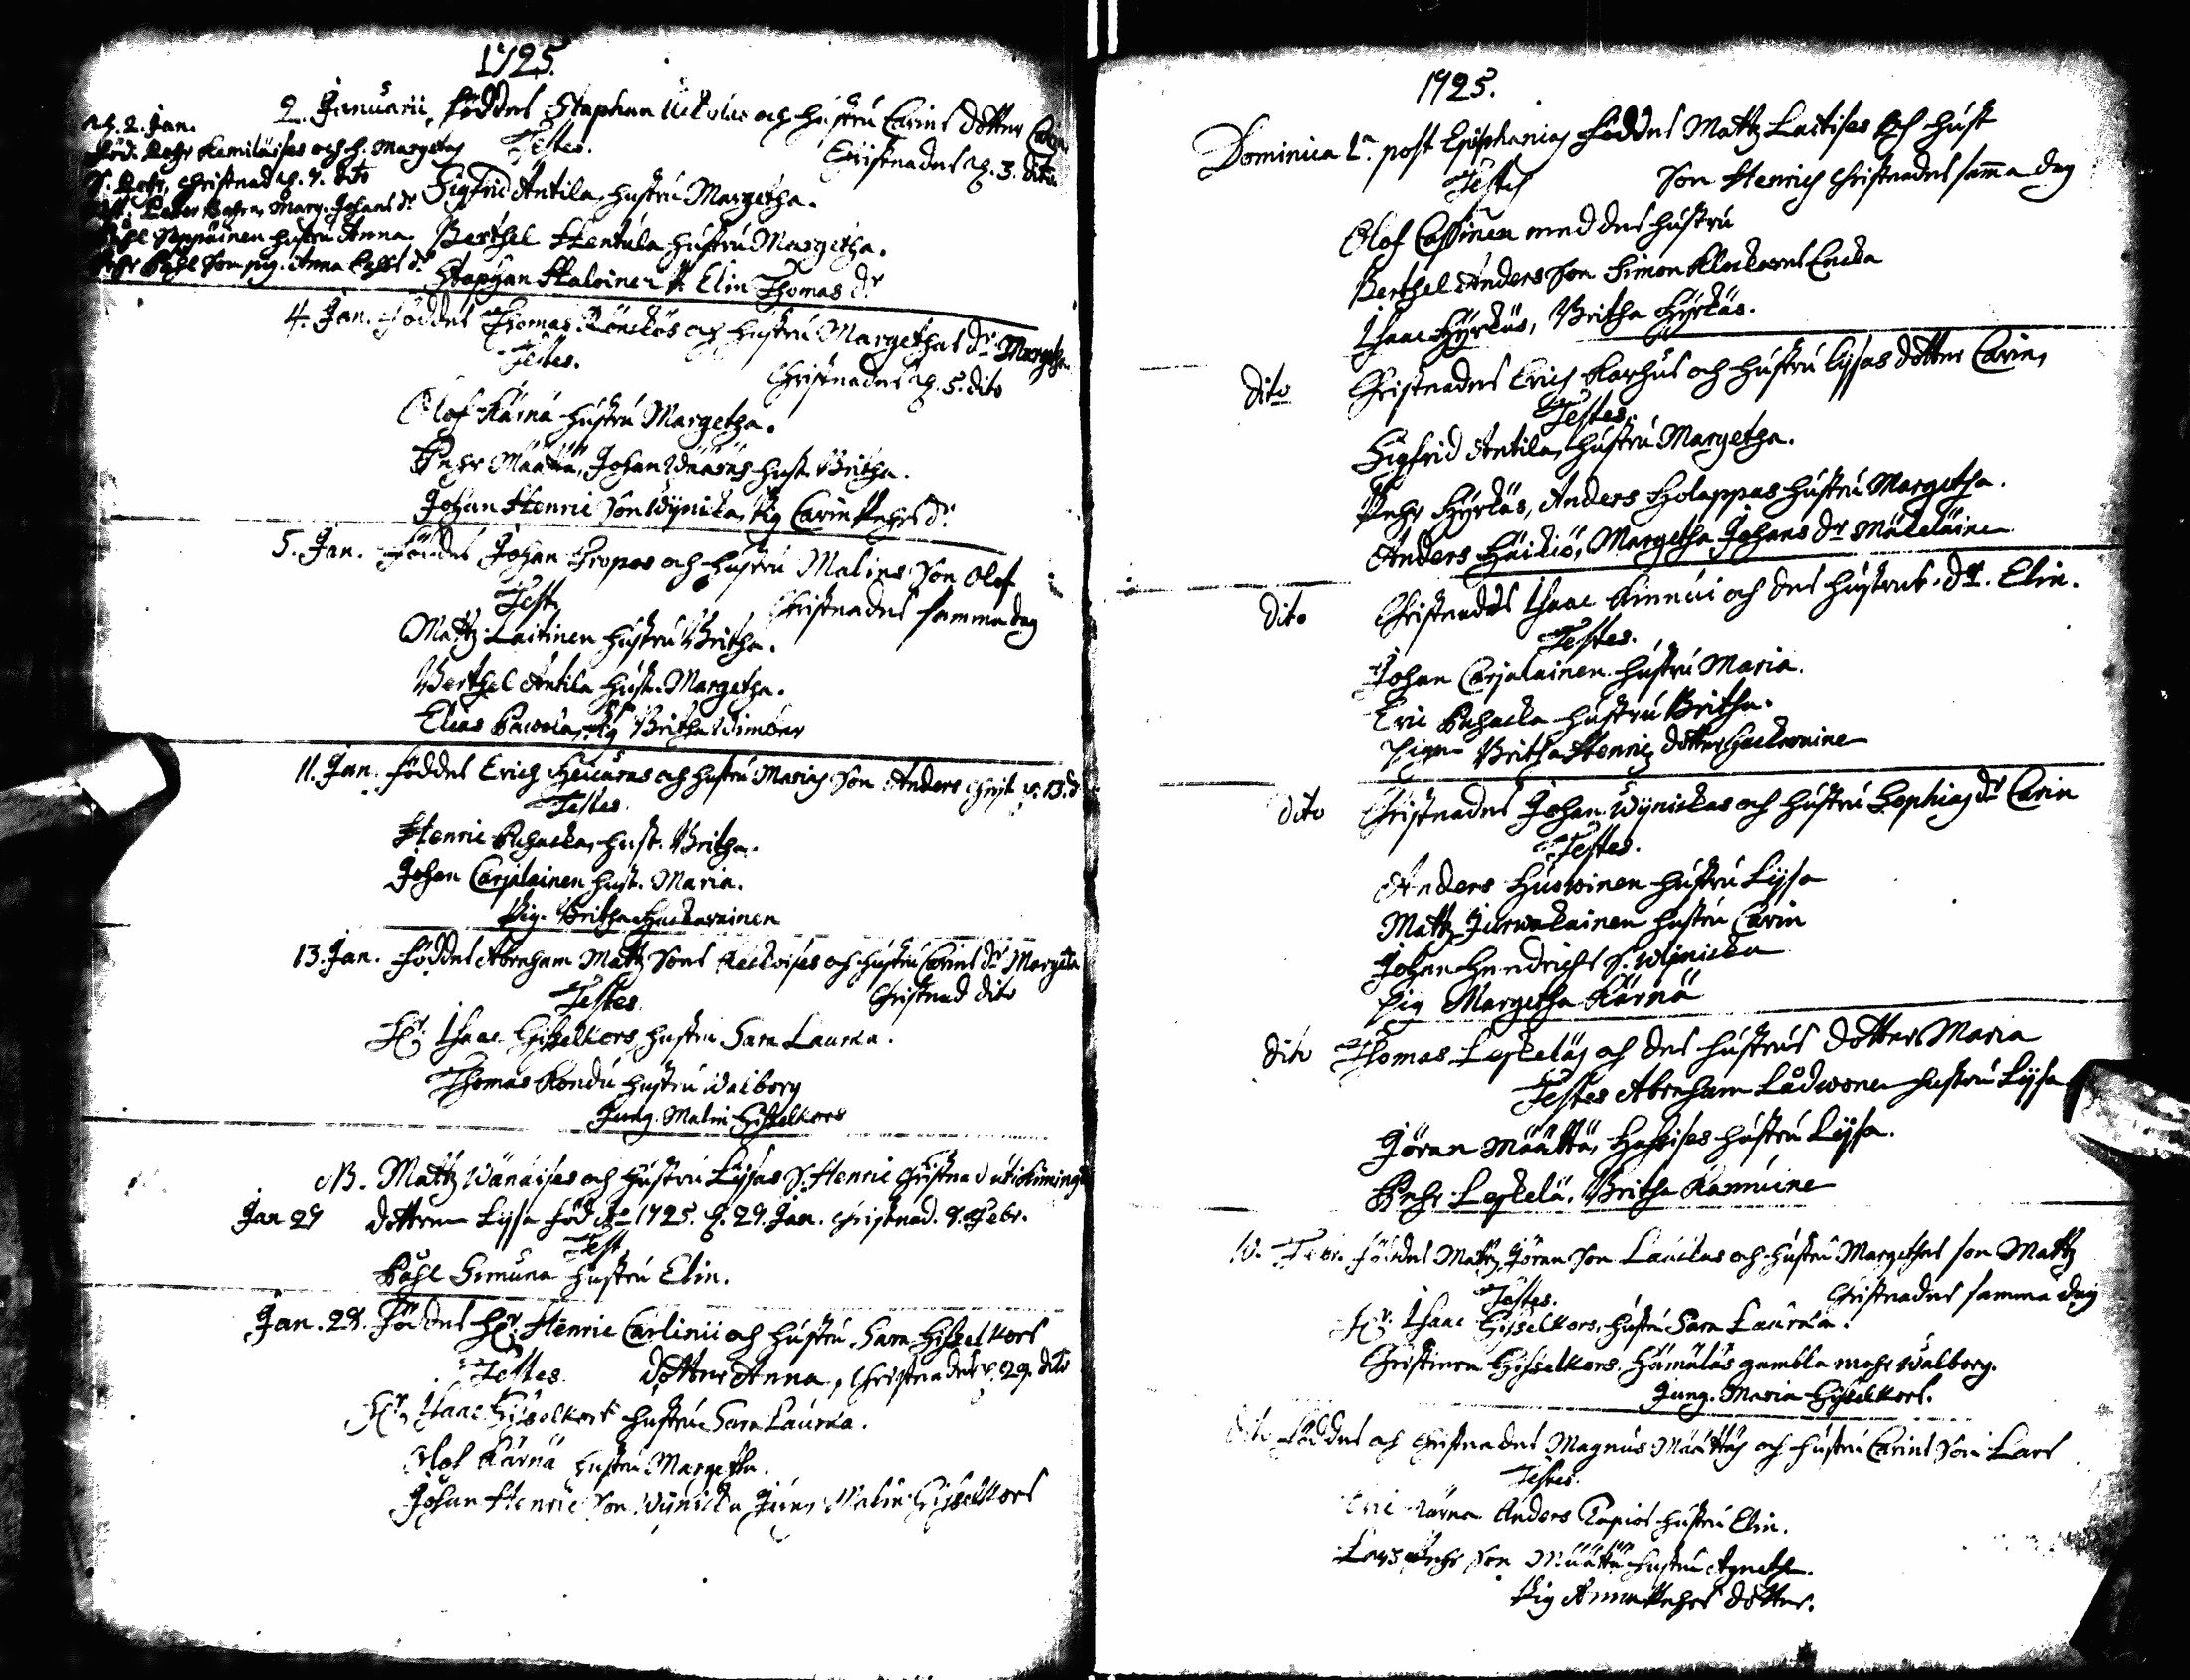 1725.
d. 2. Jan.
Föd. Pehr Kemiläises och h. Margetas
S. Pehr, Christnad d. 7. dito
Test: Pater Bahra, Marg. Johans dr
Påhl Seppäinen hustru Anna.
Pehr Påhl Son pig. Anna Lars dr
2. Januarii, föddes Staphan Uckolas och hustru Carins dotter Carin
Testes. Christnades d. 3. dito
Sigfrid Antila, hustru Margetha.
Berthel Hentula hustru Margetha.
Staphan Haloinen P. Elin Thomas dr
4. Jan. föddes Thomas Rönckös och hustru Margethas dr Margetha
Testes. Christnades d. 5. dito
Olof Kärnä hustru Margetha.
Pehr Määttä, Johan hust. Britha.
Johan Henric Son Wynicka, Pig Carin Pehrs dr
5. Jan. Föddes Johan Tropos och hustru Malins Son Olof
Test. Christnades samma dag
Mattz Laitinen hustru Britha.
Berthel Antila hust. Margetha.
Elias Pawola, Pig Britha Simoens
11. Jan. föddes Erich Heicuras och hustru Marias Son Anders Christ. d. 13. d
Testes.
Henric Pahacka, hust. Britha.
Johan Carjalainen hust. Maria.
Pig. Britha Hackarainen
13. Jan. föddes Abraham Mattz Sons Keckoises och hustru Carins dr Margeta
Testes. Christnad dito
Hr. Isaac Gisselkors hustru Sara Laurœa.
Thomas Kondu hustru Walborg
Jung. Malin Gisselkors
NB. Mattz Wänäises och hustru Lysas S. Henric Christnad uti Kiminge
Jan 27 dottren Lysa föd Ao 1725. d. 27. Jan. Christnad. 7. Febr.
Test
Påhl Simuna hustru Elin.
Jan. 28. Föddes Hr. Henric Carlinii och hustru Sara Gisselkors
Testes. dotter Anna, Christnades d. 29. dito
Hr. Isaac Gisselkors hustru Sara Laurœa.
Olof Kärnä hustru Margetha.
Johan Henric Son Wynicka Jung Malin Gisselkors
1725.
Dominica 1a. post Epiphanias föddes Mattz Laitises och hust
Testes Son Henrich Christnades samma dag
Olof Cassinen med des hustru
Berthel Anders Son Simon Klockares Encka
Isaac Hyrkäs, Britha Hyrkäs.
dito Christnades Erich Karhus och hustru Lysas dotter Carin,
Testes.
Sigfrid Antila, hustru Margetha.
Pehr Hyrkäs, Anders Holappas hustru Margetha.
Anders Häikiö, Margetha Johans dr Mäkeläinen
dito Christnades Isaac Kinnui och des hustrus dr. Elin.
Testes.
Johan Carjalainen hustru Maria.
Eric Pahacka hustru Britha.
Pigan Britha Henric dotter Hackarainen
dito Christnades Johan Wynickas och hustru Sophias dr Carin
Testes.
Anders Huowinen hustru Lysa
Mattz Jurwakainen hustru Carin
Johan Hendrichs S. Wynicka
Pig Margetha Kärnä
dito Thomas Leskeläs och des hustrus dotter Maria
Testes Abraham Lådwonen hustru Lysa
Jöran Määttä, Hassises hustru Lysa.
Pehr Leskelä, Britha Kamuine
10. Febr. föddes Mattz Jöran Son Lauckas och hustru Margethas son Mattz
Testes. Christnades samma dag
Hr. Isaac Gisselkors, hustru Sara Laurœa.
Christiern Gisselkors. Hämäläs gambla mohr Walborg.
Jung. Maria Gisselkors.
dito föddes och Christnades Magnus Määttäs och hustru Carins Son Lars
Testes.
Eric Kärna Anders Tapios hustru Elin.
Lars Pehr Son Määttä hustru Agnetha.
Pig Anna Pehrs dotter.